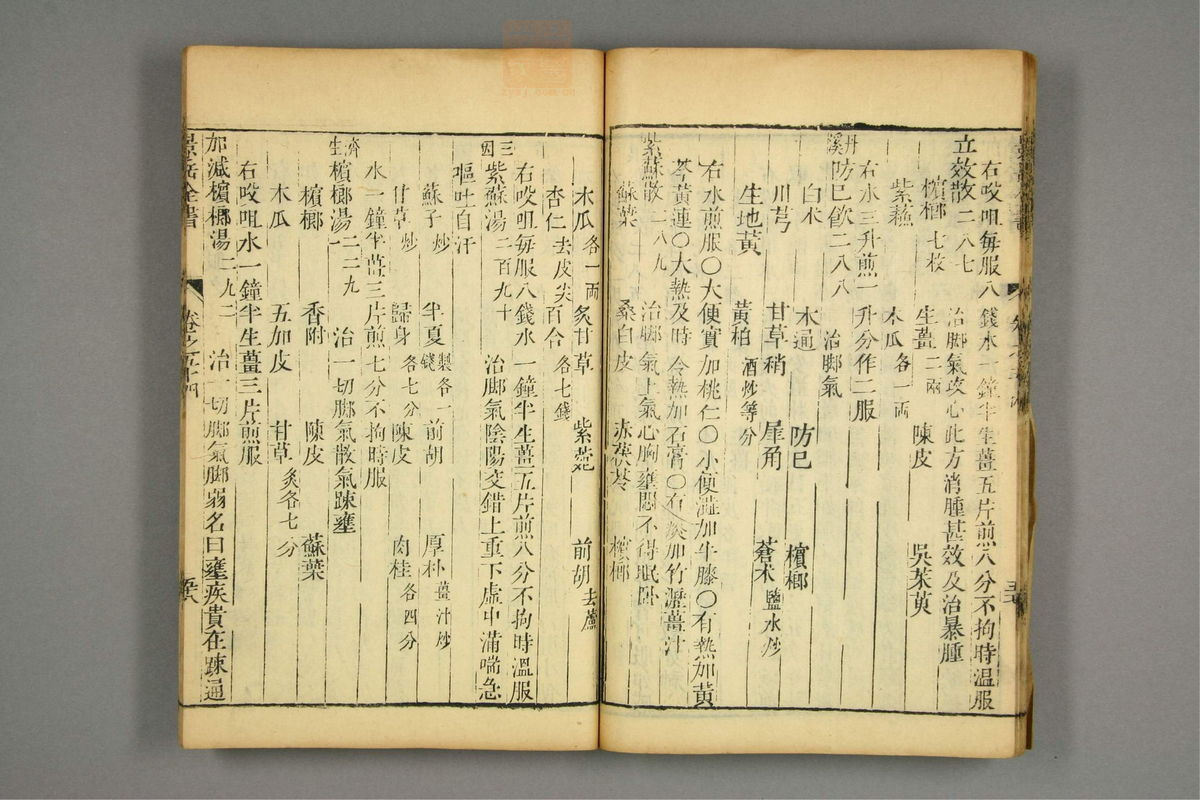 右㕮咀每服八錢水一鐘半生薑五片煎八分不拘時溫服
立效散二八七 治腳氣攻心此方消腫甚效及治暴腫
檳榔七枚 生薑二兩 陳皮 吳茱萸
紫蘇 木瓜各一兩
右水三升煎一升分作二服
丹溪防巳飲二八八 治腳氣
白朮 木通 防巳 檳榔
川芎 甘草稍 犀角 蒼朮鹽水炒
生地黃 黃柏酒炒等分
右水煎服〇大便實加桃仁〇小便澁加牛膝〇有熱加黃
芩黃連〇大熱及時令熱加石膏〇有痰加竹瀝薑汁
紫蘇散二八九 治腳氣上氣心胸壅悶不得眠臥
蘇葉 桑白皮 赤茯苓 檳榔
木瓜各一兩 炙甘草 紫菀 前胡去蘆
杏仁去皮尖 百合各七錢
右㕮咀每服八錢水一鐘半生薑五片煎八分不拘時溫服
三因紫蘇湯二百九十 治腳氣陰陽交錯上重下虛中滿喘急
嘔吐自汗
蘇子炒 半夏製各一錢 前胡 厚朴薑汁炒
甘草炒 歸身各七分 陳皮 肉桂各四分
水一鐘半薑三片煎七分不拘時服
濟生檳榔湯二二九一 治一切腳氣散氣踈壅
檳榔 香附 陳皮 蘇葉
木瓜 五加皮 甘草炙各七分
右㕮咀水一鐘半生薑三片煎服
加減檳榔湯二九二 治一切腳氣腳弱名曰壅疾貴在踈通
景岳全書 卷之五十四 五八